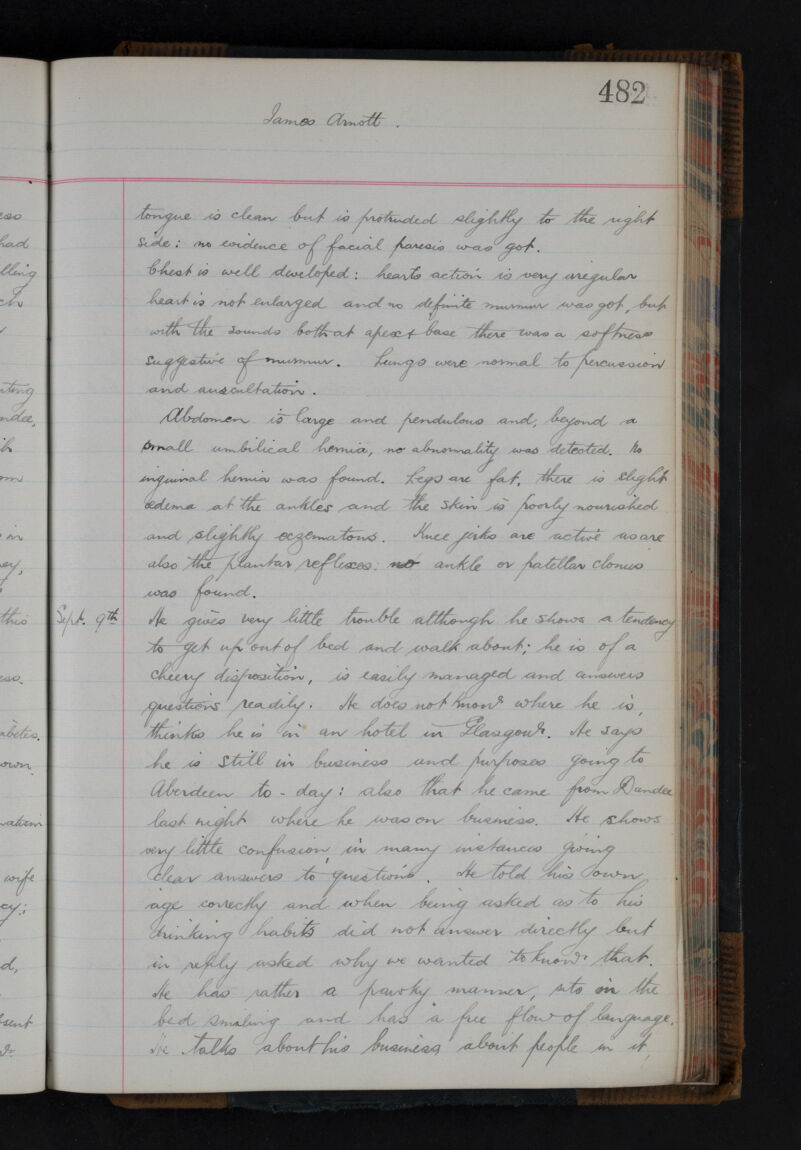 482
James Arnott.
tongue is clean but is protruded slightly to the right
side: no evidence of facial paresis was got.
Chest is well developed: hearts action is very irregular
heart is not enlarged and no definite murmur was got, but
with the sounds both at apex & base there was a softness
suggestive of murmur. Lungs were normal to percussion
and auscultation.
Abdomen is large and pendulous and, beyond a
small umbilical hernia, no abnormality was detected. No
inguinal hernia was found. Legs are fat, there is slight
œdema at the ankles and the skin is poorly nourished
and slightly eczematous. Knee jerks are active as are
also the plantar reflexes: no ankle or patellar clonus
was found.
Sept. 9th He gives very little trouble although he shows a tendency
to get up out of bed and walk about; he is of a
cheery disposition, is easily managed and answers
questions readily. He does not know where he is,
thinks he is in an hotel in Glasgow. He says
he is still in business and purposes going to
Aberdeen to-day: also that he came from Dundee
last night where he was on business. He shows
very little confusion, in many instances giving
clear answers to questions. He told his own
age correctly and when being asked as to his
drinking habits did not answer directly but
in reply asked why we wanted to know that.
He has rather a pawky manner, sits in the
bed smiling and has a free flow of language.
He talks about his business about people in it,